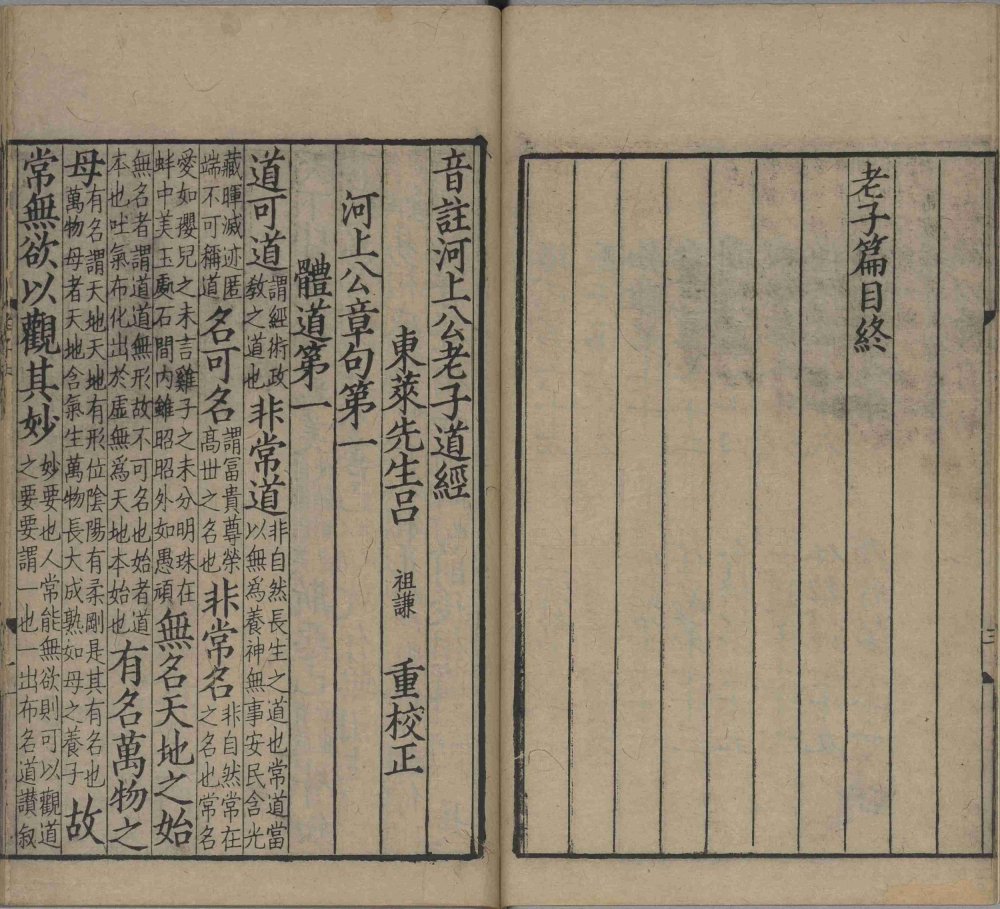 老子篇目終
音註河上公老子道經
東萊先生呂 祖謙 重校正
河上公章句第一
體道第一
道可道謂經術政教之道也非常道非自然長生之道也常道當以無爲養神無事安民含光
藏暉滅迹匿端不可稱道名可名謂冨貴尊榮高世之名也非常名非自然常在之名也常名
愛如孾兒之未言雞子之未分明珠在蚌中美玉處石間内雖昭昭外如愚頑無名天地之始
無名者謂道道無形故不可名也始者道本也吐氣布化出於虛無爲天地本始也有名萬物之
母有名謂天地天地有形位陰陽有柔剛是其有名也萬物母者天地含氣生萬物長大成熟如母之養子故
常無欲以觀其妙妙要也人常能無欲則可以觀道之要要謂一也一出布名道讚叙